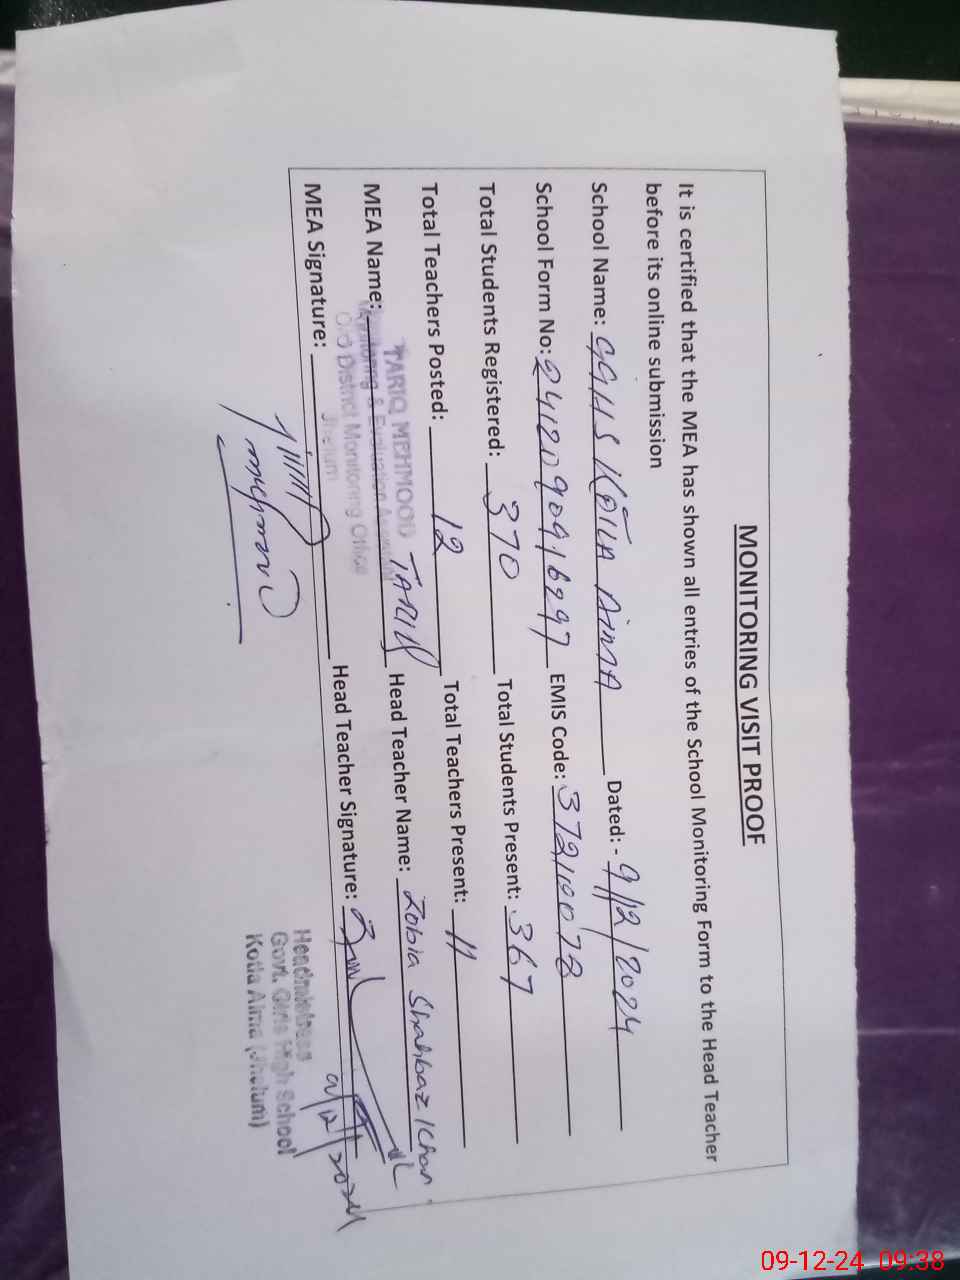 MONITORING VISIT PROOF
It is certified that the MEA has shown all entries of the School Monitoring Form to the Head Teacher
before its online submission
School Name: GGHS KOTLA AIMA Dated: - 9/12/2024
School Form No: 2412090916297 EMIS Code: 37210078
Total Students Registered: 370 Total Students Present: 367
Total Teachers Posted: 12 Total Teachers Present: 11
TARIQ MEHMOOD
MEA Name: TARIQ Head Teacher Name: Zobia Shahbaz Khan
Monitoring & Evaluation Assistant
O/o District Monitoring Office
Jhelum
MEA Signature: Head Teacher Signature:
9/12/2024
Headmistress
Govt. Girls High School
Kotla Aima (Jhelum)
09-12-24 09:38